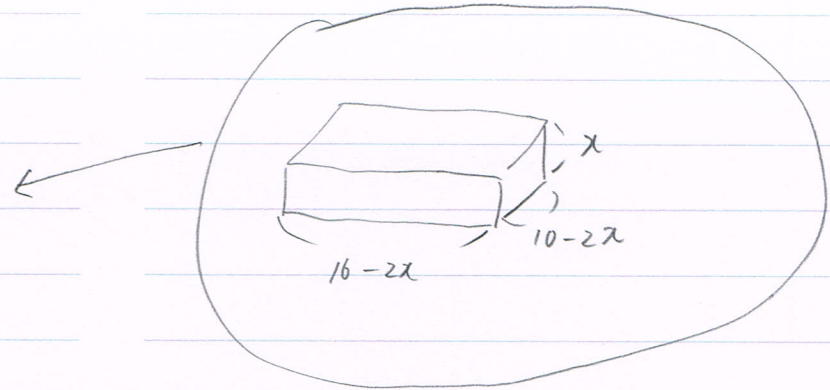 x
10-2x
16-2x